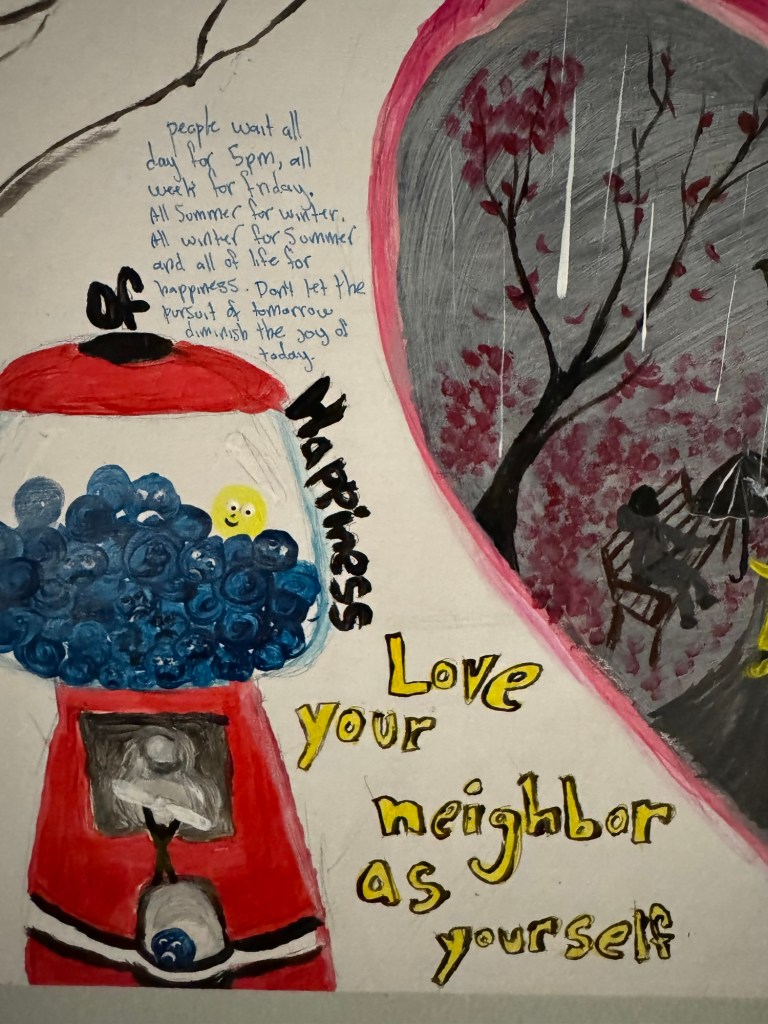 people wait all
day for 5pm, all
week for friday.
All Summer for winter.
All winter for Summer
and all of life for
happiness. Don't let the
pursuit of tomorrow
diminish the joy of
today.
Of
Happiness
Love
your
neighbor
as
yourself